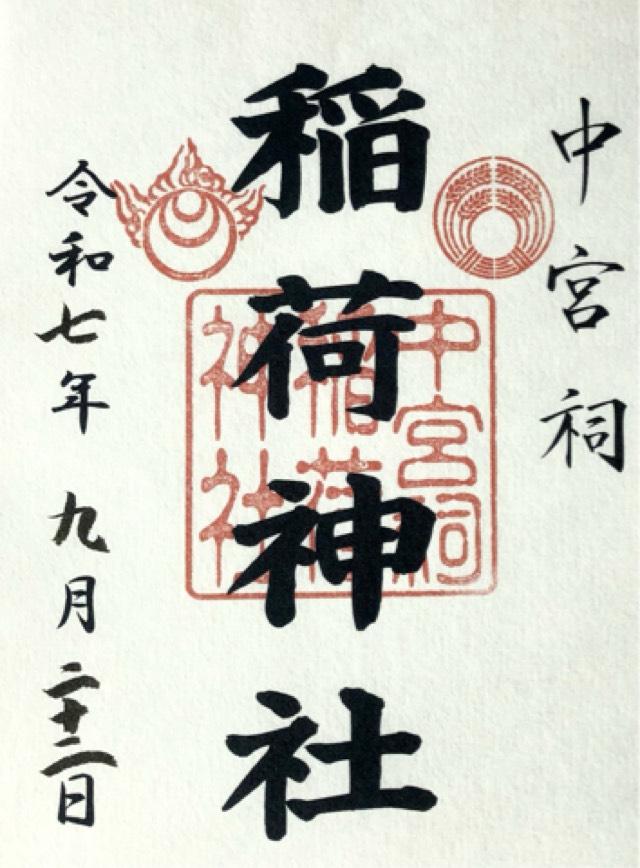 中宮祠
稲荷神社
中宮祠
稲荷
神社
令和七年九月二十二日